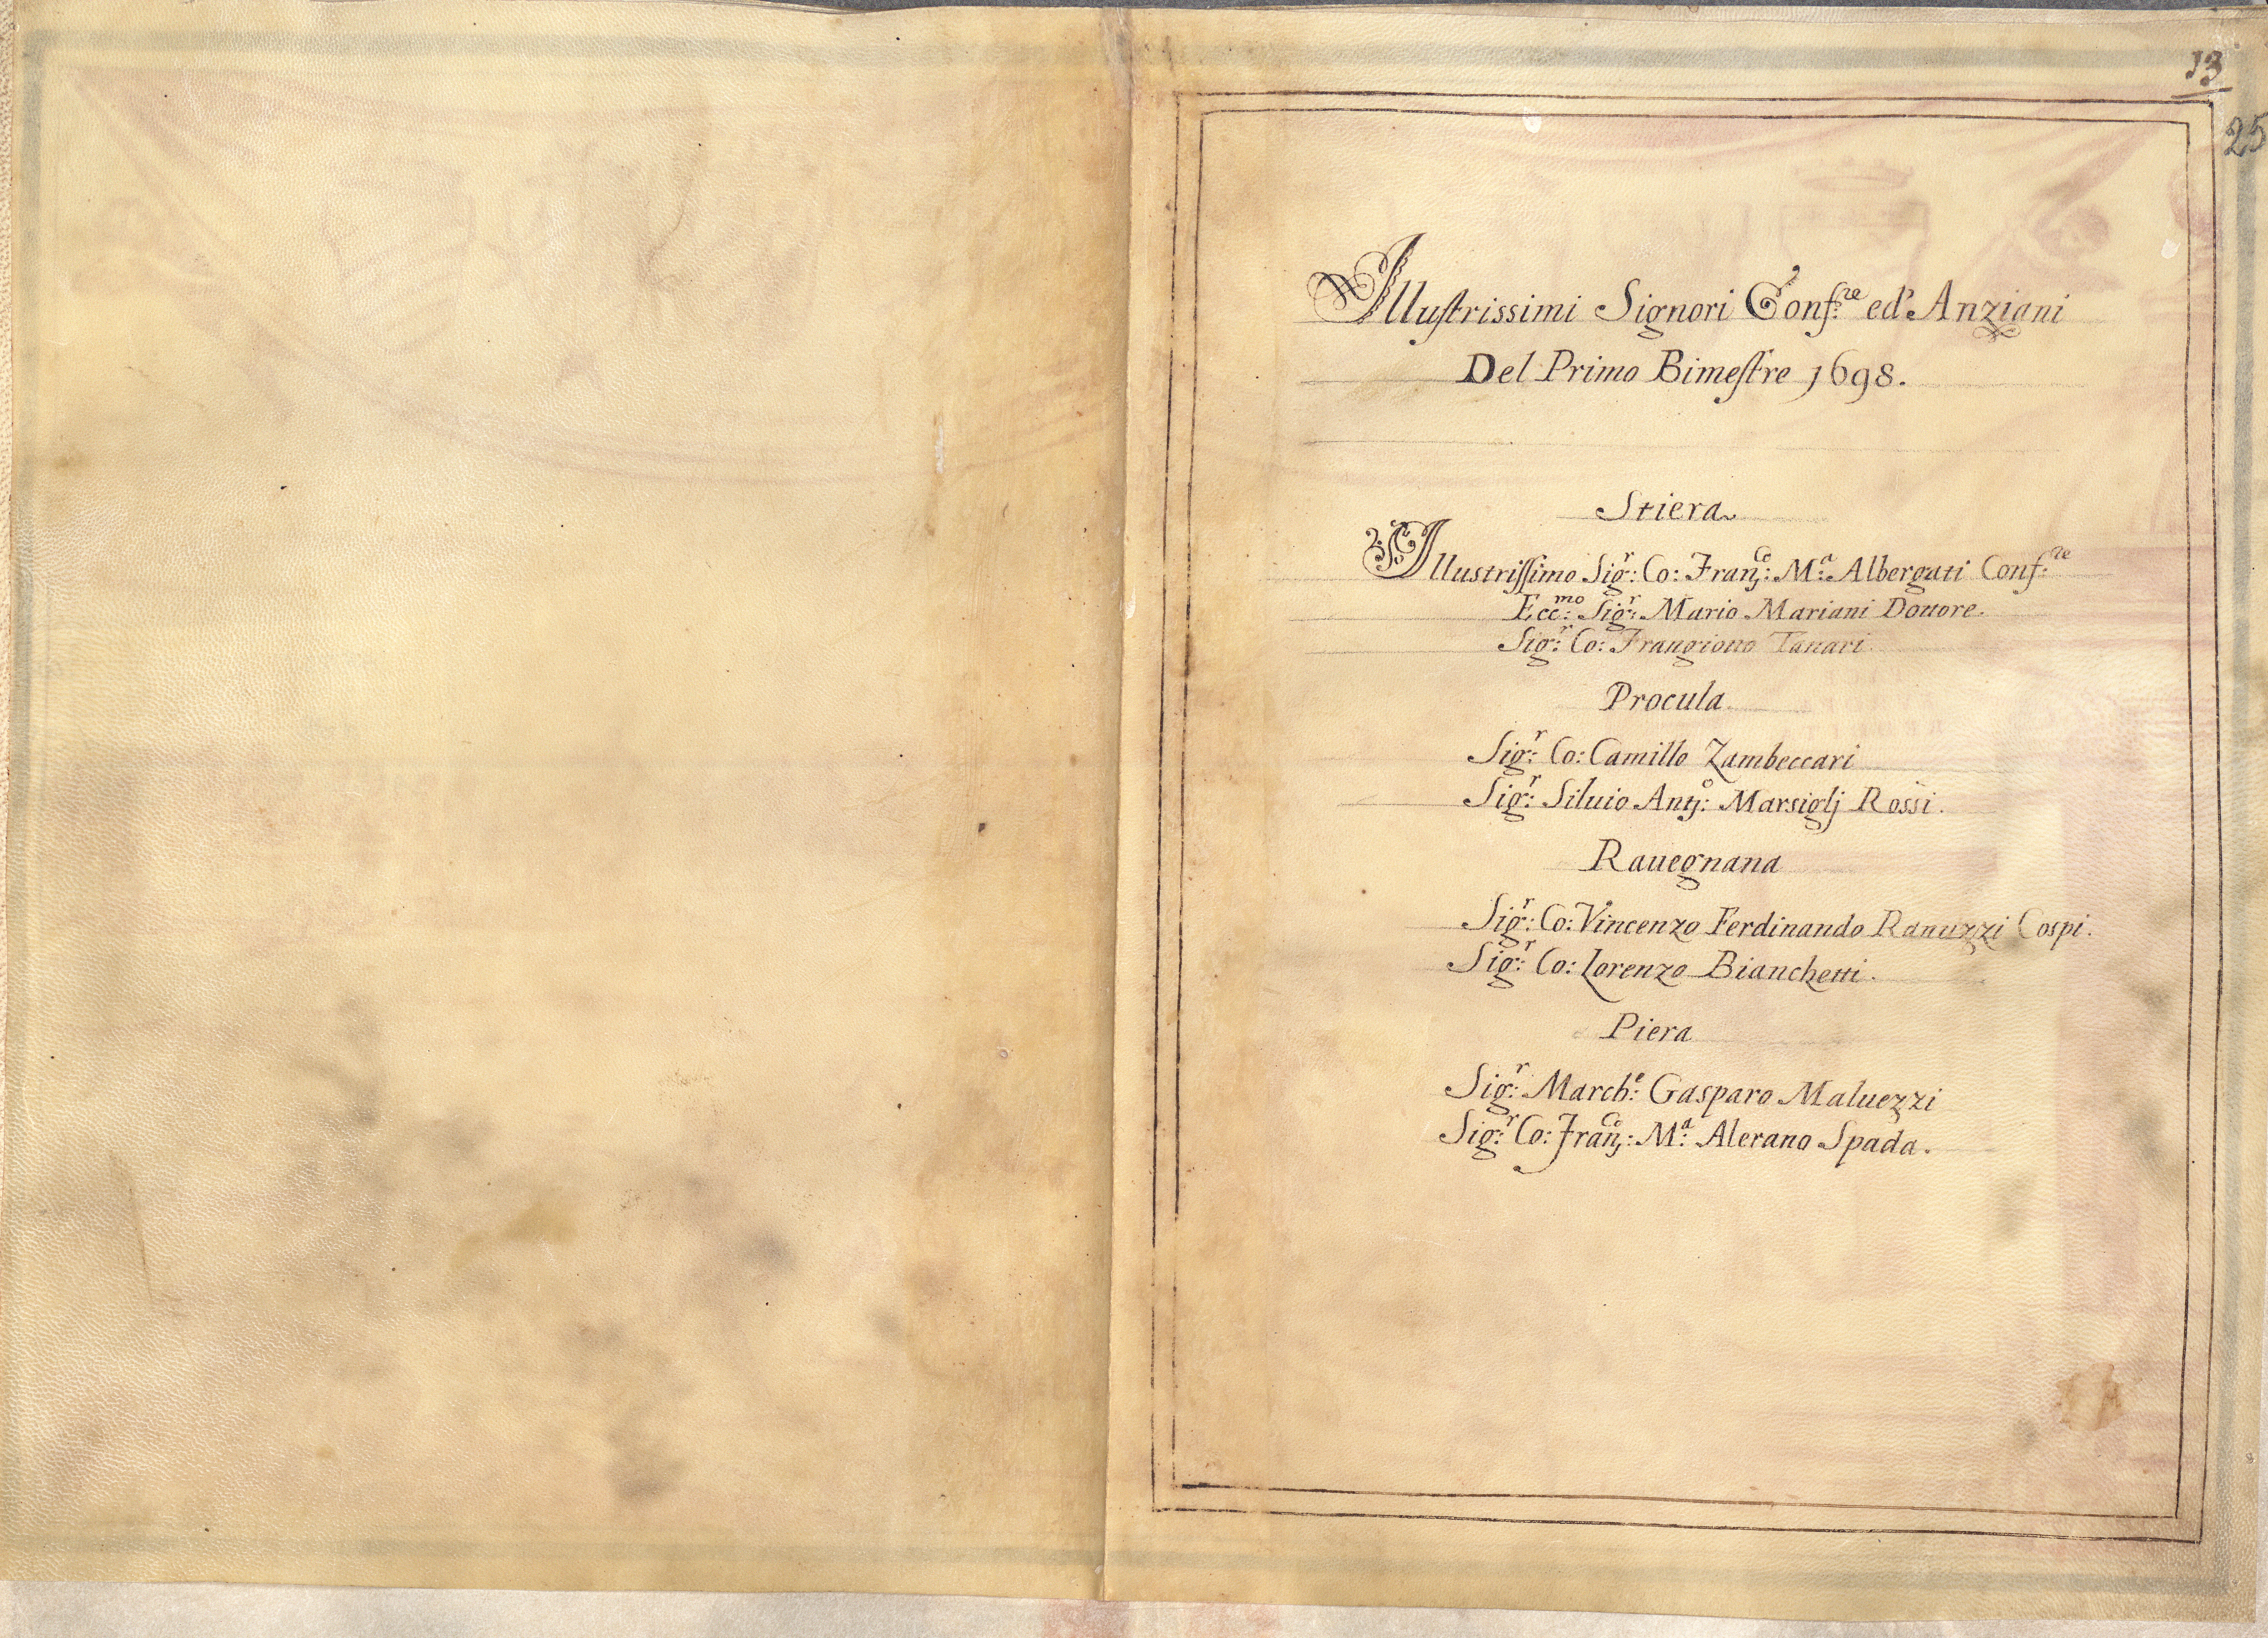 13
25
Illustrissimi Signori Conf:re ed Anziani
Del Primo Bimestre 1698.
Stiera
Illustrissimo Sig:r Co: Fran:co M:a Albergati Conf:re
Ecc:mo Sig:r Mario Mariani Dottore.
Sig:r Co: Frangiotto Tanari.
Procula
Sig:r Co: Camillo Zambeccari
Sig:r Siluio Ant:o Marsiglj Rossi.
Rauegnana
Sig:r Co: Vincenzo Ferdinando Ranuzzi Cospi.
Sig:r Co: Lorenzo Bianchetti.
Piera
Sig:r March:e Gasparo Maluezzi
Sig:r Co: Fran:co M:a Alerano Spada.